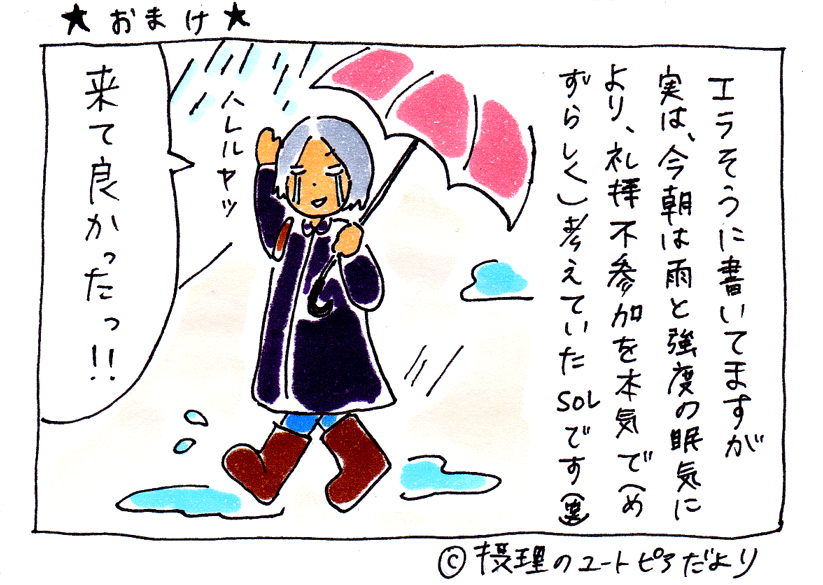 ★おまけ★
エラそうに書いてますが
実は、今朝は雨と強度の眠気に
より、礼拝不参加を本気で(め
ずらしく)考えていたSOLです(笑)
ハレルヤッ
来て良かったっ!!
©摂理のユートピアだより